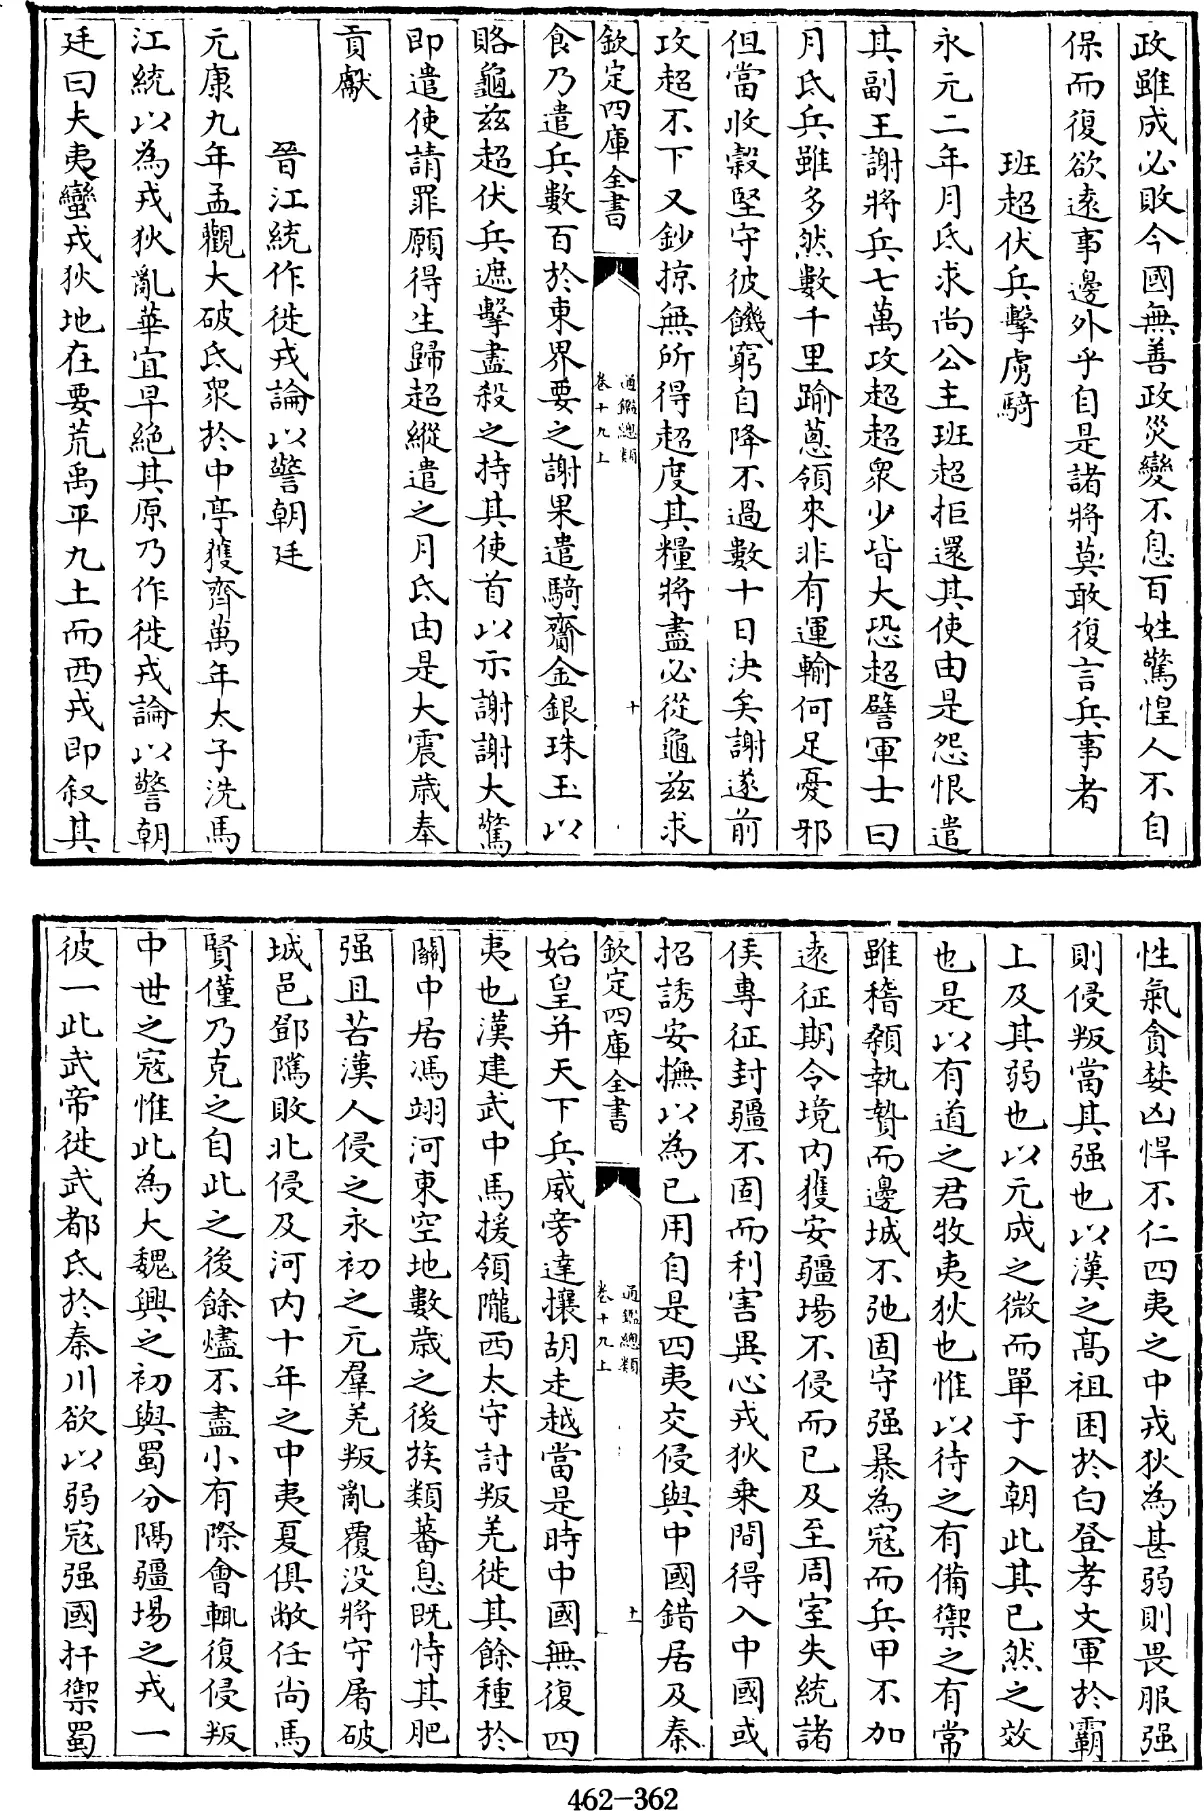 政雖成必敗今國無善政災變不息百姓驚惶人不自
保而復欲遠事邊外乎自是諸將莫敢復言兵事者
班超伏兵擊虜騎
永元二年月氏求尚公主班超拒還其使由是怨恨遣
其副王謝將兵七萬攻超超衆少皆大恐超譬軍士曰
月氏兵雖多然數千里踰蔥領來非有運輸何足憂邪
但當收穀堅守彼饑窮自降不過數十日決矣謝遂前
攻超不下又鈔掠無所得超度其糧將盡必從龜兹求
欽定四庫全書
通鑑總類
卷十九上
十
食乃遣兵數百於東界要之謝果遣騎齎金銀珠玉以
賂龜兹超伏兵遮擊盡殺之持其使首以示謝謝大驚
即遣使請罪願得生歸超縱遣之月氏由是大震歲奉
貢獻
晉江統作徙戎論以警朝廷
元康九年孟觀大破氐衆於中亭獲齊萬年太子洗馬
江統以為戎狄亂華宜早絶其原乃作徙戎論以警朝
廷曰夫夷蠻戎狄地在要荒禹平九土而西戎即叙其
性氣貪婪凶悍不仁四夷之中戎狄為甚弱則畏服强
則侵叛當其强也以漢之髙祖困於白登孝文軍於霸
上及其弱也以元成之微而單于入朝此其已然之效
也是以有道之君牧夷狄也惟以待之有備禦之有常
雖稽顙執贄而邊城不弛固守强暴為寇而兵甲不加
遠征期令境内獲安疆場不侵而已及至周室失統諸
侯專征封疆不固而利害異心戎狄乗間得入中國或
招誘安撫以為已用自是四夷交侵與中國錯居及秦
欽定四庫全書
通鑑總類
卷十九上
十一
始皇并天下兵威旁達攘胡走越當是時中國無復四
夷也漢建武中馬援領隴西太守討叛羌徙其餘種於
關中居馮翊河東空地數歲之後族類蕃息既恃其肥
强且苦漢人侵之永初之元羣羌叛亂覆没將守屠破
城邑鄧隲敗北侵及河内十年之中夷夏俱敝任尚馬
賢僅乃克之自此之後餘燼不盡小有際會輒復侵叛
中世之寇惟此為大魏興之初與蜀分隔疆場之戎一
彼一此武帝徙武都氐於秦川欲以弱寇强國扞禦蜀
462-362